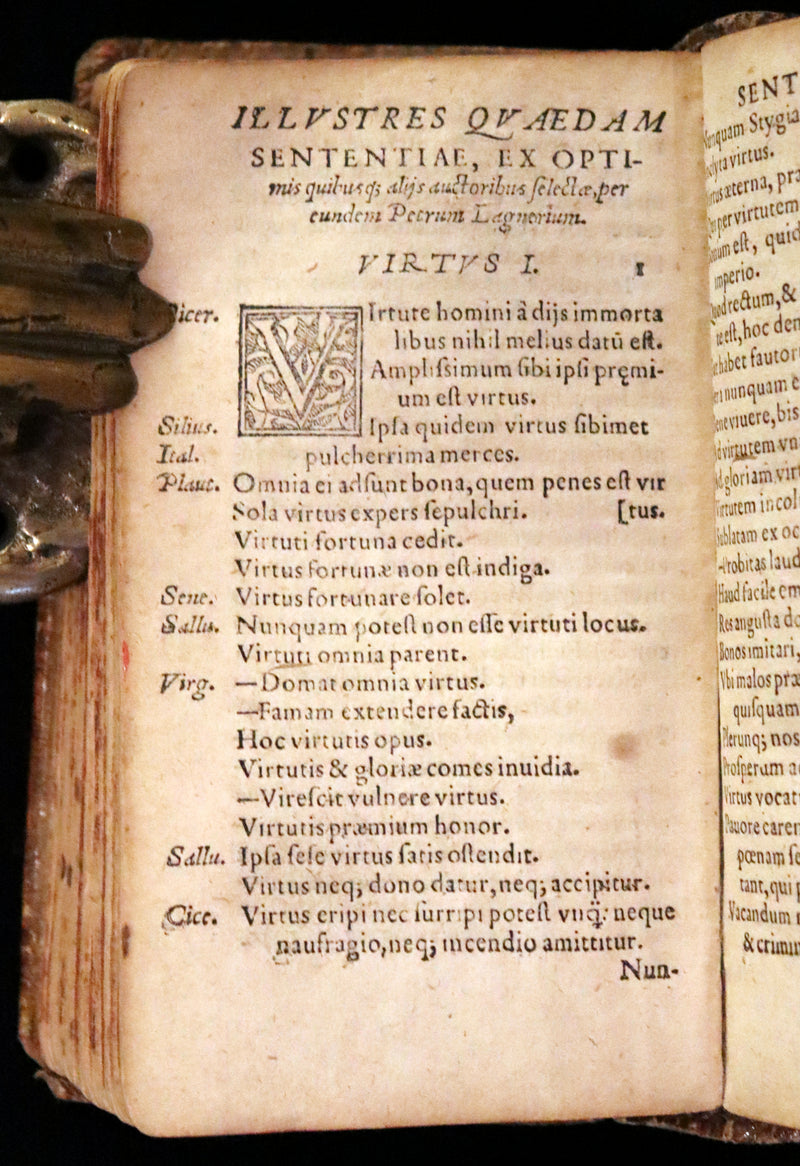 ILLVSTRES QVAEDAM
SENTENTIAE, EX OPTI-
mis quibusq; alijs auctoribus ſelectæ, per
eundem Petrum Lagnerium.
VIRTVS I. 1
Cicer. VIrtute homini à dijs immorta
libus nihil melius datū eſt.
Ampliſsimum ſibi ipſi pręmi-
um eſt virtus.
Silius. Ipſa quidem virtus ſibimet
Ital. pulcherrima merces.
Plaut. Omnia ei adſunt bona, quem penes eſt vir
Sola virtus expers ſepulchri. [tus.
Virtuti fortuna cedit.
Virtus fortunæ non eſt indiga.
Sene. Virtus fortunare ſolet.
Sallu. Nunquam poteſt non eſſe virtuti locus.
Virtuti omnia parent.
Virg. —Domat omnia virtus.
—Famam extendere factis,
Hoc virtutis opus.
Virtutis & gloriæ comes inuidia.
—Vireſcit vulnere virtus.
Virtutis præmium honor.
Sallu. Ipſa ſeſe virtus ſatis oſtendit.
Virtus neq; dono datur, neq; accipitur.
Cice. Virtus eripi nec ſurripi poteſt vnq̃: neque
naufragio, neq; incendio amittitur.
Nun-
SENT
Stygia
virtus.
æterna, præ
per virtutem
eſt, quid
imperio.
rectum, &
eſt, hoc
habet
nunquam
viuere, bis
virtutem
gloriam
incol
ex oc
Probitas laud
Haud facile em
Res anguſta do
Bonos imitari,
Vbi malos præ
quiſquam
Plerunq; nos
Proſperum ac
Virtus vocat
Pauore caren
pœnam ſe
tant, qui
Vacandum
& crimin